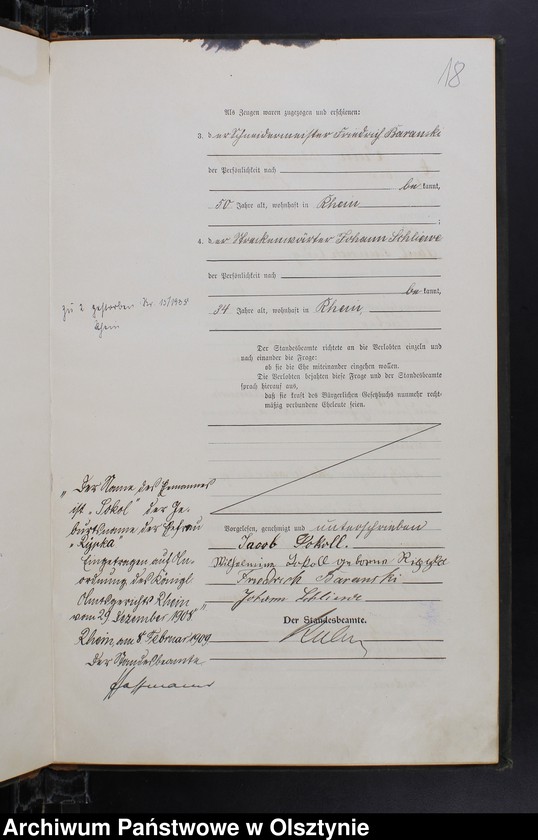 18
Als Zeugen waren zugezogen und erschienen:
3. der Schneidermeister Friedrich Baranski
der Persönlichkeit nach
be kannt,
50 Jahre alt, wohnhaft in Rhein
;
4. der Streckenwärter Johann Schliewe
der Persönlichkeit nach
be kannt,
34 Jahre alt, wohnhaft in Rhein.
zu 2 gestorben Nr. 15/1938
Rhein
Der Standesbeamte richtete an die Verlobten einzeln und
nach einander die Frage:
ob sie die Ehe miteinander eingehen wollen.
Die Verlobten bejahten diese Frage und der Standesbeamte
sprach hierauf aus,
daß sie kraft des Bürgerlichen Gesetzbuchs nunmehr recht-
mäßig verbundene Eheleute seien.
„Der Name des Ehemannes
ist „Sokol“ der Ge-
burtsname der Ehefrau
„Rzypka“
Eingetragen auf An-
ordnung des Königl
Amtsgerichts Rhein
vom 29 Dezember 1908.“
Rhein, am 8 Februar 1909
Der Standesbeamte
Hoffmann
Vorgelesen, genehmigt und unterschrieben
Jacob Sokoll.
Wilhelmine Sokoll geborne
Friedrich Baranski
Johann Schliewe
Der Standesbeamte.
Archiwum Państwowe w Olsztynie